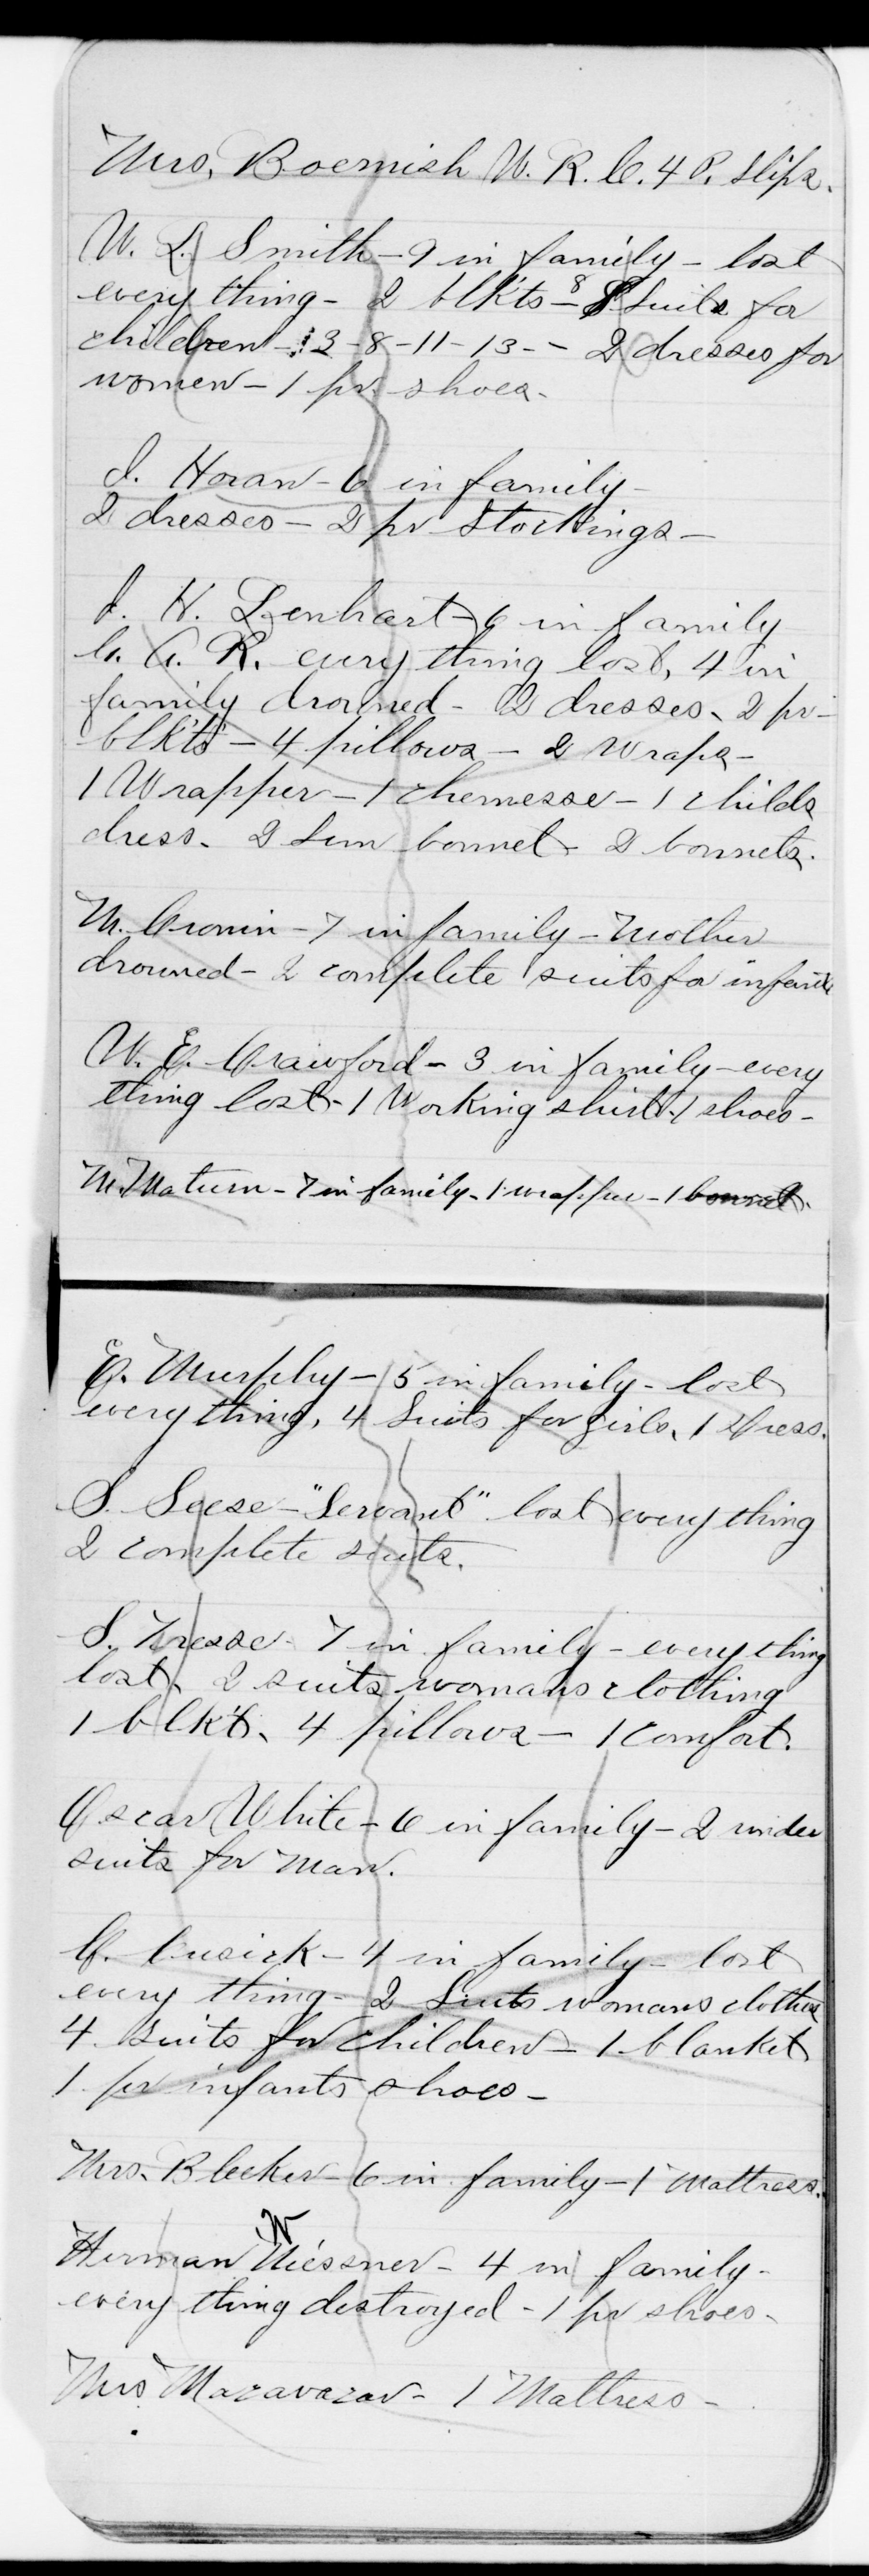 Mrs. Boemish W. R. C. 4 P. Slips.
W. L. Smith - 9 in family - lost
every thing - 2 blk'ts - 8 Suits for
children - 3 - 8 - 11 - 13 - - 2 dresses for
women - 1 pr. shoes -
J. Horan - 6 in family -
2 dresses - 2 pr Stockings -
J. H. Lenhart - 6 in family
G. A. R. every thing lost, 4 in
family drowned - 2 dresses - 2 pr -
blk'ts - 4 pillows - 2 Wraps -
1 Wrapper - 1 chemesse - 1 childs
dress - 2 Sun bonnet - 2 bonnets.
M. Cronin - 7 in family - Mother
drowned - 2 complete suits for infants
W. E. Crawford - 3 in family - every
thing lost - 1 Working shirt - 1 shoes -
M. Maturn - 7 in family - 1 wrapper - 1 bonnet.
E. Murphy - 5 in family - lost
every thing, 4 Suits for girls, 1 Dress.
S. Seese - "Servant" lost every thing
2 complete suits.
S. Trease - 7 in family - every thing
lost, 2 suits womans clothing
1 blk't, 4 pillows - 1 comfort.
Oscar White - 6 in family - 2 under
suits for man.
C. Cusick - 4 in family - lost
every thing - 2 Suits womans clothes
4 Suits for children - 1 blanket
1 pr infants shoes -
Mrs. Blecker - 6 in family - 1 Mattress.
W
Herman Niessner - 4 in family -
every thing destroyed - 1 pr shoes -
Mrs - 1 Mattress -